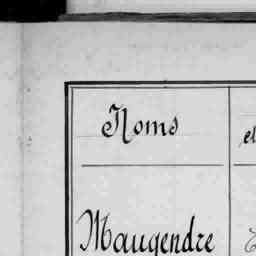 Noms et
Maugendre